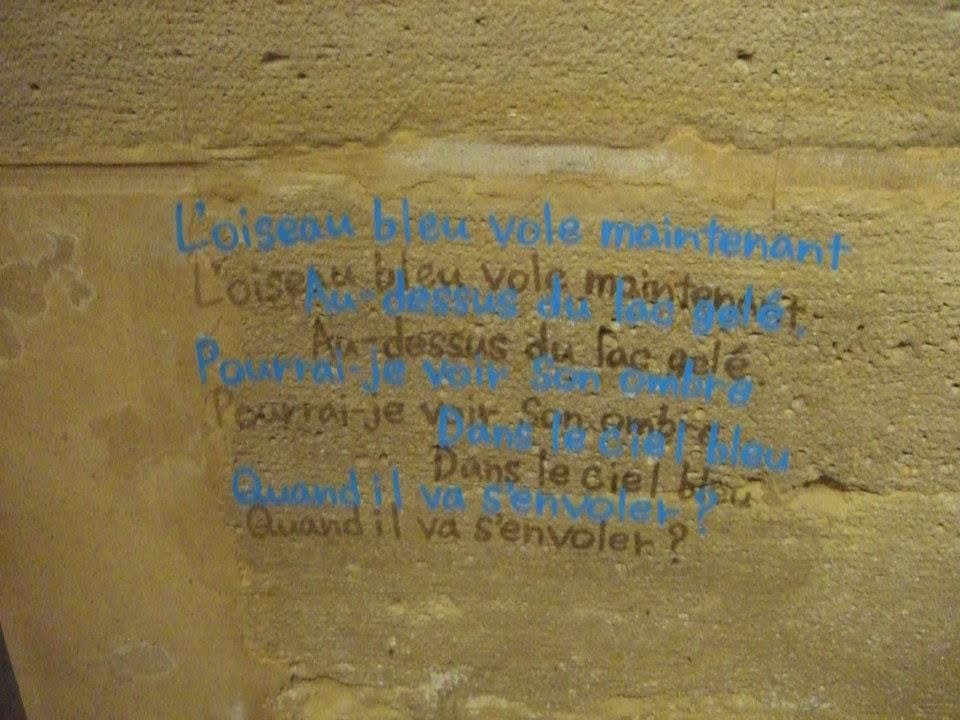 L'oiseau bleu vole maintenant
L'oiseau bleu vole maintenant
Au-dessus du lac gelé.
Au-dessus du lac gelé.
Pourrai-je voir son ombre
Pourrai-je voir son ombre
Dans le ciel bleu
Dans le ciel bleu
Quand il va s'envoler ?
Quand il va s'envoler ?